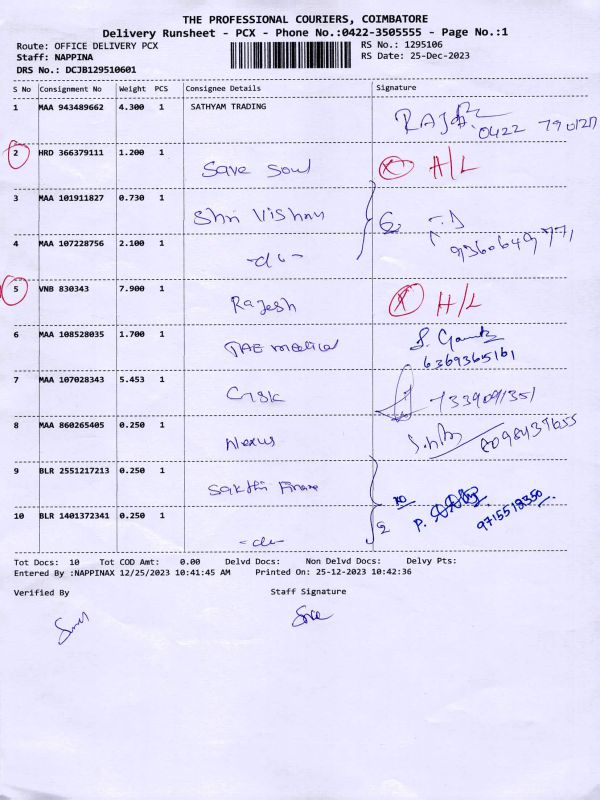 THE PROFESSIONAL COURIERS, COIMBATORE
Delivery Runsheet - PCX - Phone No.:0422-3505555 - Page No.:1
Route: OFFICE DELIVERY PCX
RS No.: 1295106
Staff: NAPPINA
RS Date: 25-Dec-2023
DRS No.: DCJB129510601
S No Consignment No Weight PCS Consignee Details Signature
1 MAA 943489662 4.300 1 SATHYAM TRADING
0422
2 HRD 366379111 1.200 1 Save Soul H/L
3 MAA 101911827 0.730 1 Shri Vishnu
4 MAA 107228756 2.100 1 -do-
5 VNB 830343 7.900 1 Rajesh H/L
6 MAA 108528035 1.700 1 medical
6369365161
7 MAA 107028343 5.453 1
8 MAA 860265405 0.250 1 Nexus
9 BLR 2551217213 0.250 1 Sakthi Finance
P. 9715518350
10 BLR 1401372341 0.250 1 -do-
Tot Docs: 10 Tot COD Amt: 0.00 Delvd Docs: Non Delvd Docs: Delvy Pts:
Entered By :NAPPINAX 12/25/2023 10:41:45 AM Printed On: 25-12-2023 10:42:36
Verified By Staff Signature